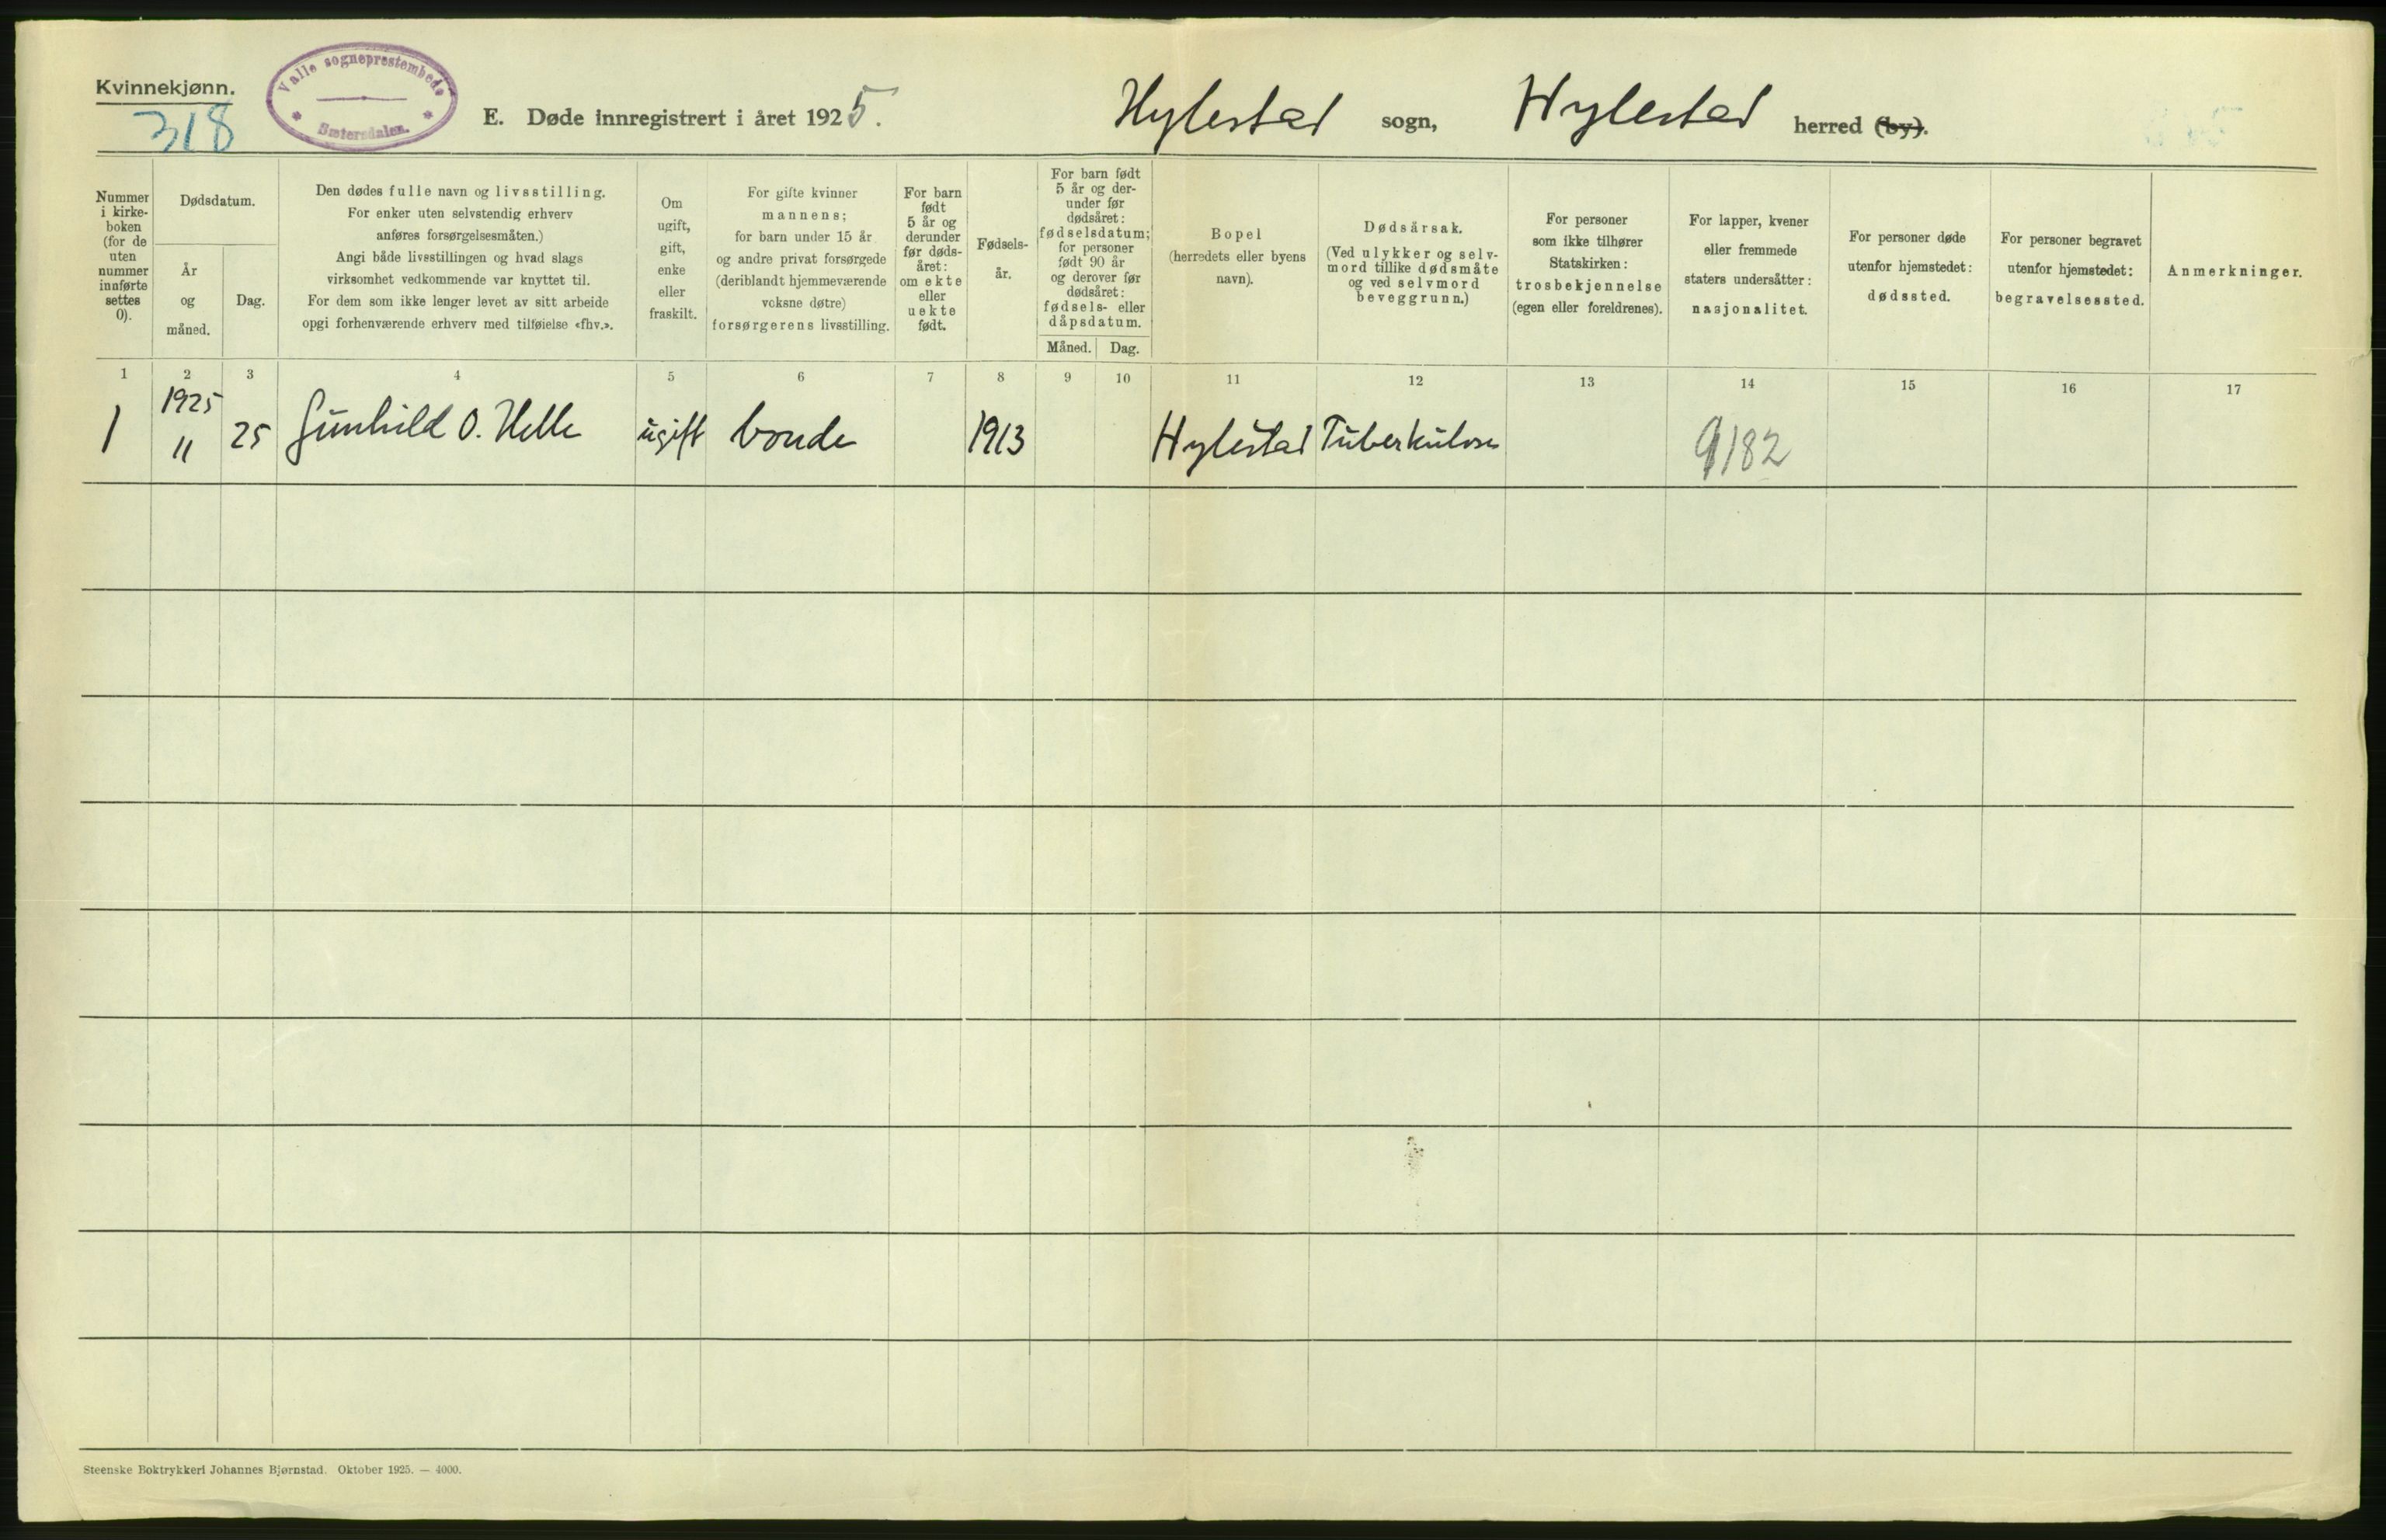 Kvinnekjønn.
318
Valle sogneprestembede
Sætersdalen.
E. Døde innregistrert i året 1925.
Hylestad sogn, Hylestad herred (by).
Nummer
i kirke-
boken
(for de
uten
nummer
innførte
settes
0).
Dødsdatum.
År
og
måned.
Dag.
Den dødes fulle navn og livsstilling.
For enker uten selvstendig erhverv
anføres forsørgelsesmåten.)
Angi både livsstillingen og hvad slags
virksomhet vedkommende var knyttet til.
For dem som ikke lenger levet av sitt arbeide
opgi forhenværende erhverv med tilføielse «fhv.».
Om
ugift,
gift,
enke
eller
fraskilt.
For gifte kvinner
mannens;
for barn under 15 år
og andre privat forsørgede
(deriblandt hjemmeværende
voksne døtre)
forsørgerens livsstilling.
For barn
født
5 år og
derunder
før døds-
året:
om ekte
eller
uekte
født.
Fødsels-
år.
For barn født
5 år og der-
under før
dødsåret:
fødselsdatum;
for personer
født 90 år
og derover før
dødsåret:
fødsels- eller
dåpsdatum.
Måned. Dag.
Bopel
(herredets eller byens
navn).
Dødsårsak.
(Ved ulykker og selv-
mord tillike dødsmåte
og ved selvmord
beveggrunn.)
For personer
som ikke tilhører
Statskirken:
trosbekjennelse
(egen eller foreldrenes).
For lapper, kvener
eller fremmede
staters undersåtter:
nasjonalitet.
For personer døde
utenfor hjemstedet:
dødssted.
For personer begravet
utenfor hjemstedet:
begravelsessted.
Anmerkninger.
1 2 3 4 5 6 7 8 9 10 11 12 13 14 15 16 17
1925
1 11 25 Gunhild O. Helle ugift bonde 1913 Hylestad Tuberkulose 9182
Steenske Boktrykkeri Johannes Bjørnstad. Oktober 1925. — 4000.